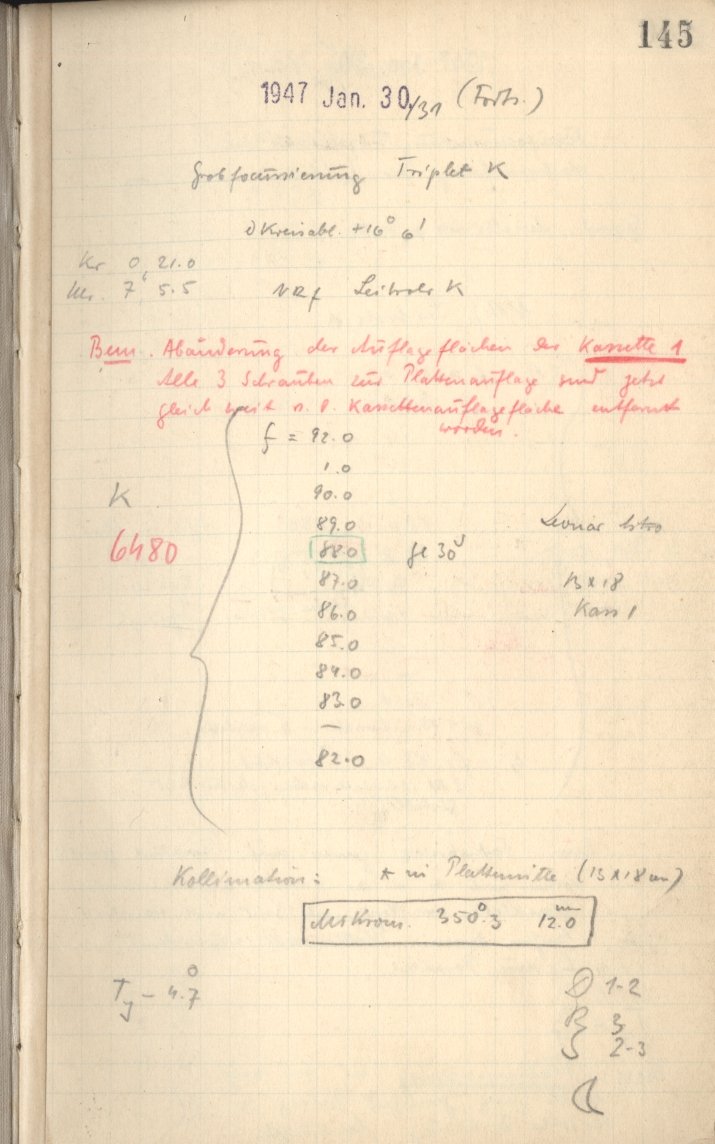 145
1947 Jan. 30/31 (Forts.)
Grobfocussierung Triplet K
δ Kreisabl. +16° 6'
0, 21.0
7, 5.5
Leitrohr K
Bem. Abänderung der Auflageflächen der Kassette 1
Alle 3 Schrauben zur Plattenauflage sind jetzt
gleich weit v. d. Kassettenauflagefläche entfernt
worden.
f = 92.0
1.0
K 90.0
89.0
6480 88.0
87.0 13 x 18
86.0 Kass 1
85.0
84.0
83.0
—
82.0
Kollimation: * in Plattenmitte (13 x 18 cm)
350°.3 12.0ᵐ
T - 4.7°
D 1-2
R 3
S 2-3
☾